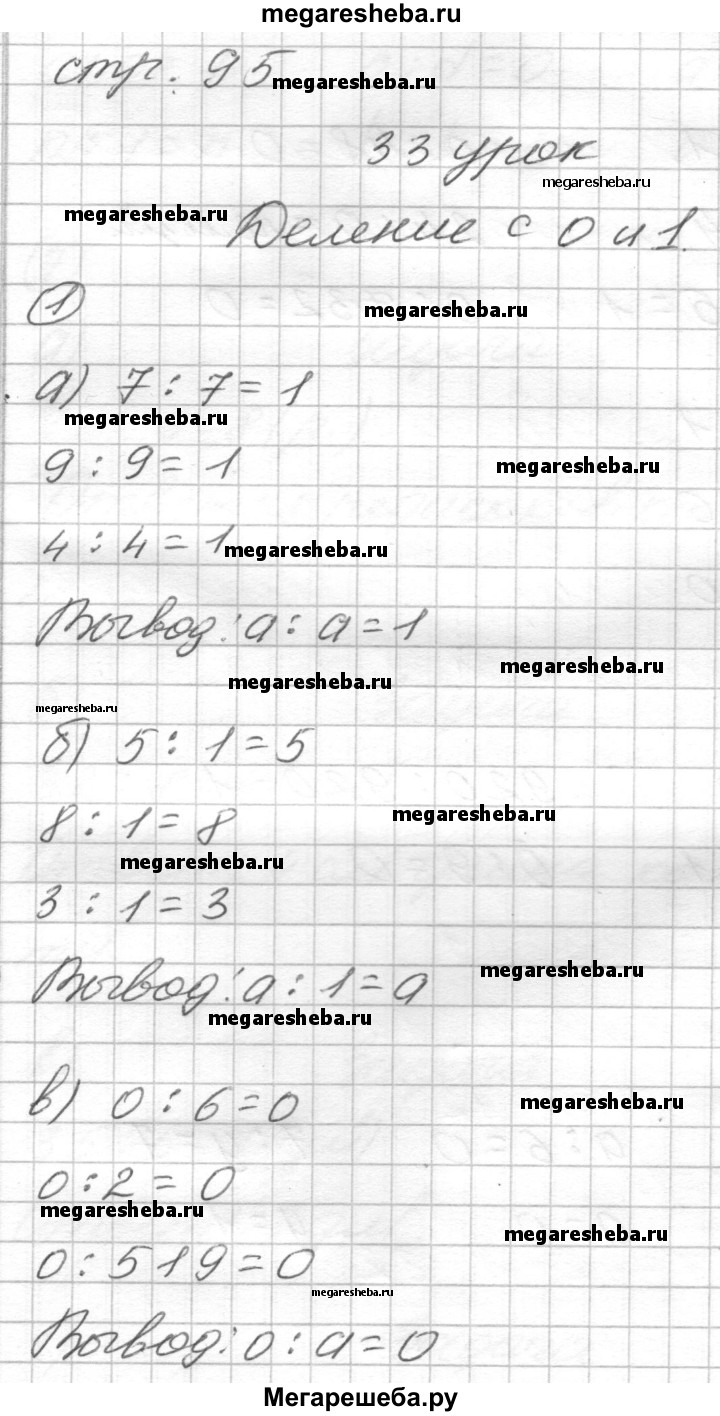 megaresheba.ru
стр. 95
megaresheba.ru
33 урок
megaresheba.ru
megaresheba.ru
Деление с 0 и 1.
1
megaresheba.ru
а) 7 : 7 = 1
megaresheba.ru
9 : 9 = 1
megaresheba.ru
4 : 4 = 1
megaresheba.ru
Вывод: а : а = 1
megaresheba.ru
megaresheba.ru
megaresheba.ru
б) 5 : 1 = 5
megaresheba.ru
8 : 1 = 8
megaresheba.ru
3 : 1 = 3
megaresheba.ru
Вывод: а : 1 = а
megaresheba.ru
в) 0 : 6 = 0
megaresheba.ru
0 : 2 = 0
megaresheba.ru
megaresheba.ru
0 : 519 = 0
megaresheba.ru
Вывод: 0 : а = 0
Мегарешеба.ру